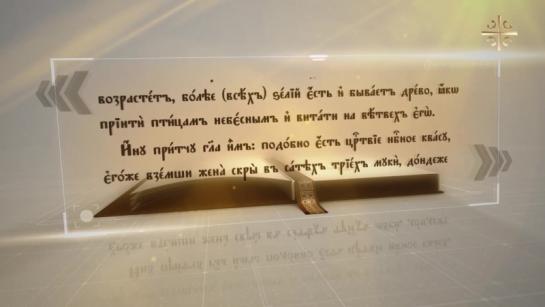 возрасте́тъ, бо́лѣе (всѣ́хъ) ѕе́лїй є҆́сть и҆ быва́етъ дре́во, ꙗ҆́кѡ
прїитѝ пти́цамъ небє́снымъ и҆ вита́ти на вѣ́твехъ є҆гѡ̀.
И҆́ну при́тчу гл҃а и҆̀мъ: подо́бно є҆́сть црⷭ҇твїе нбⷭ҇ное ква́су,
є҆го́же взе́мши жена̀ скры̀ въ са́тѣхъ трїе́хъ мꙋкѝ, до́ндеже